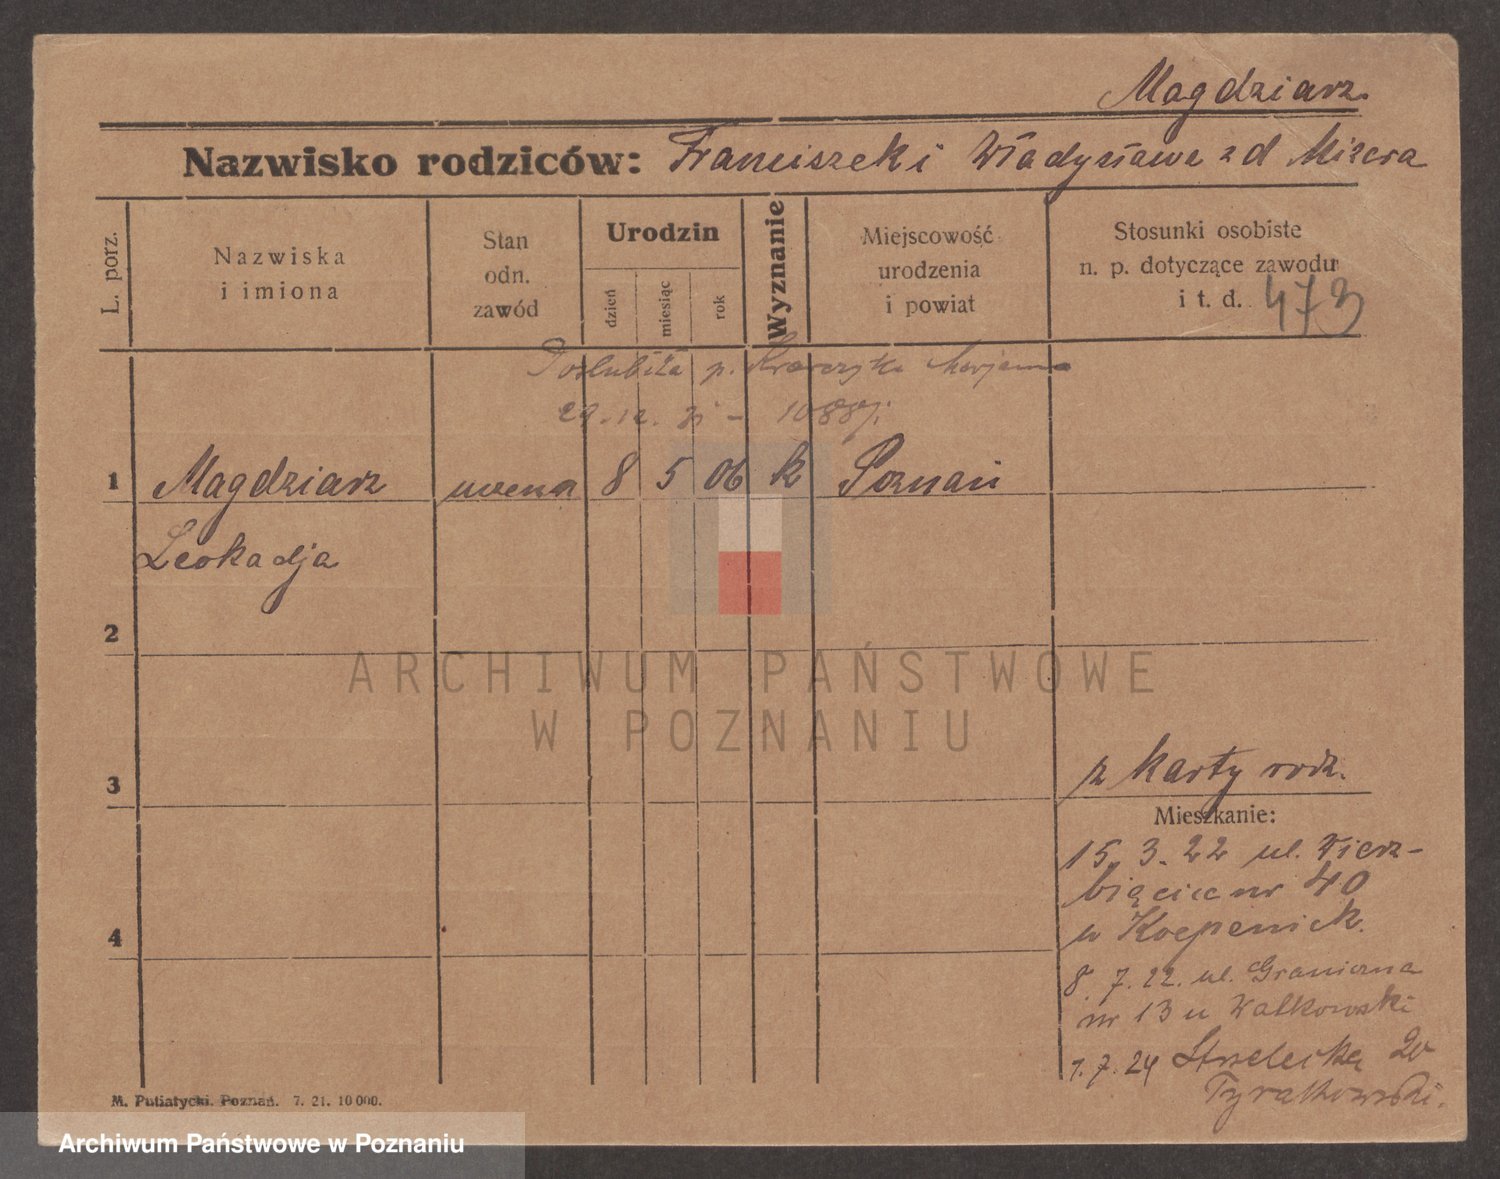 Magdziarz.
Nazwisko rodziców: Franciszek i Władysława zd Mizera
L. porz.
Nazwiska
i imiona
Stan
odn.
zawód
Urodzin
dzień
miesiąc
rok
Wyznanie
Miejscowość
urodzenia
i powiat
Stosunki osobiste
n. p. dotyczące zawodu
i t. d. 473
Poślubiła p. Krawczyka Marjana
29.12.
1 Magdziarz 8 5 06 k Poznań
Leokadja
2
3
z karty rodz.
Mieszkanie:
15. 3. 22 ul. Wierz-
bięcice nr 40
u Koepenick.
4
8. 7. 22. ul. Graniczna
nr 13 u Walkowski
1. 7. 24 Strzelecka 20
Tyrakowski.
M. Putiatycki. Poznań. 7. 21. 10 000.
ARCHIWUM PAŃSTWOWE
W POZNANIU
Archiwum Państwowe w Poznaniu